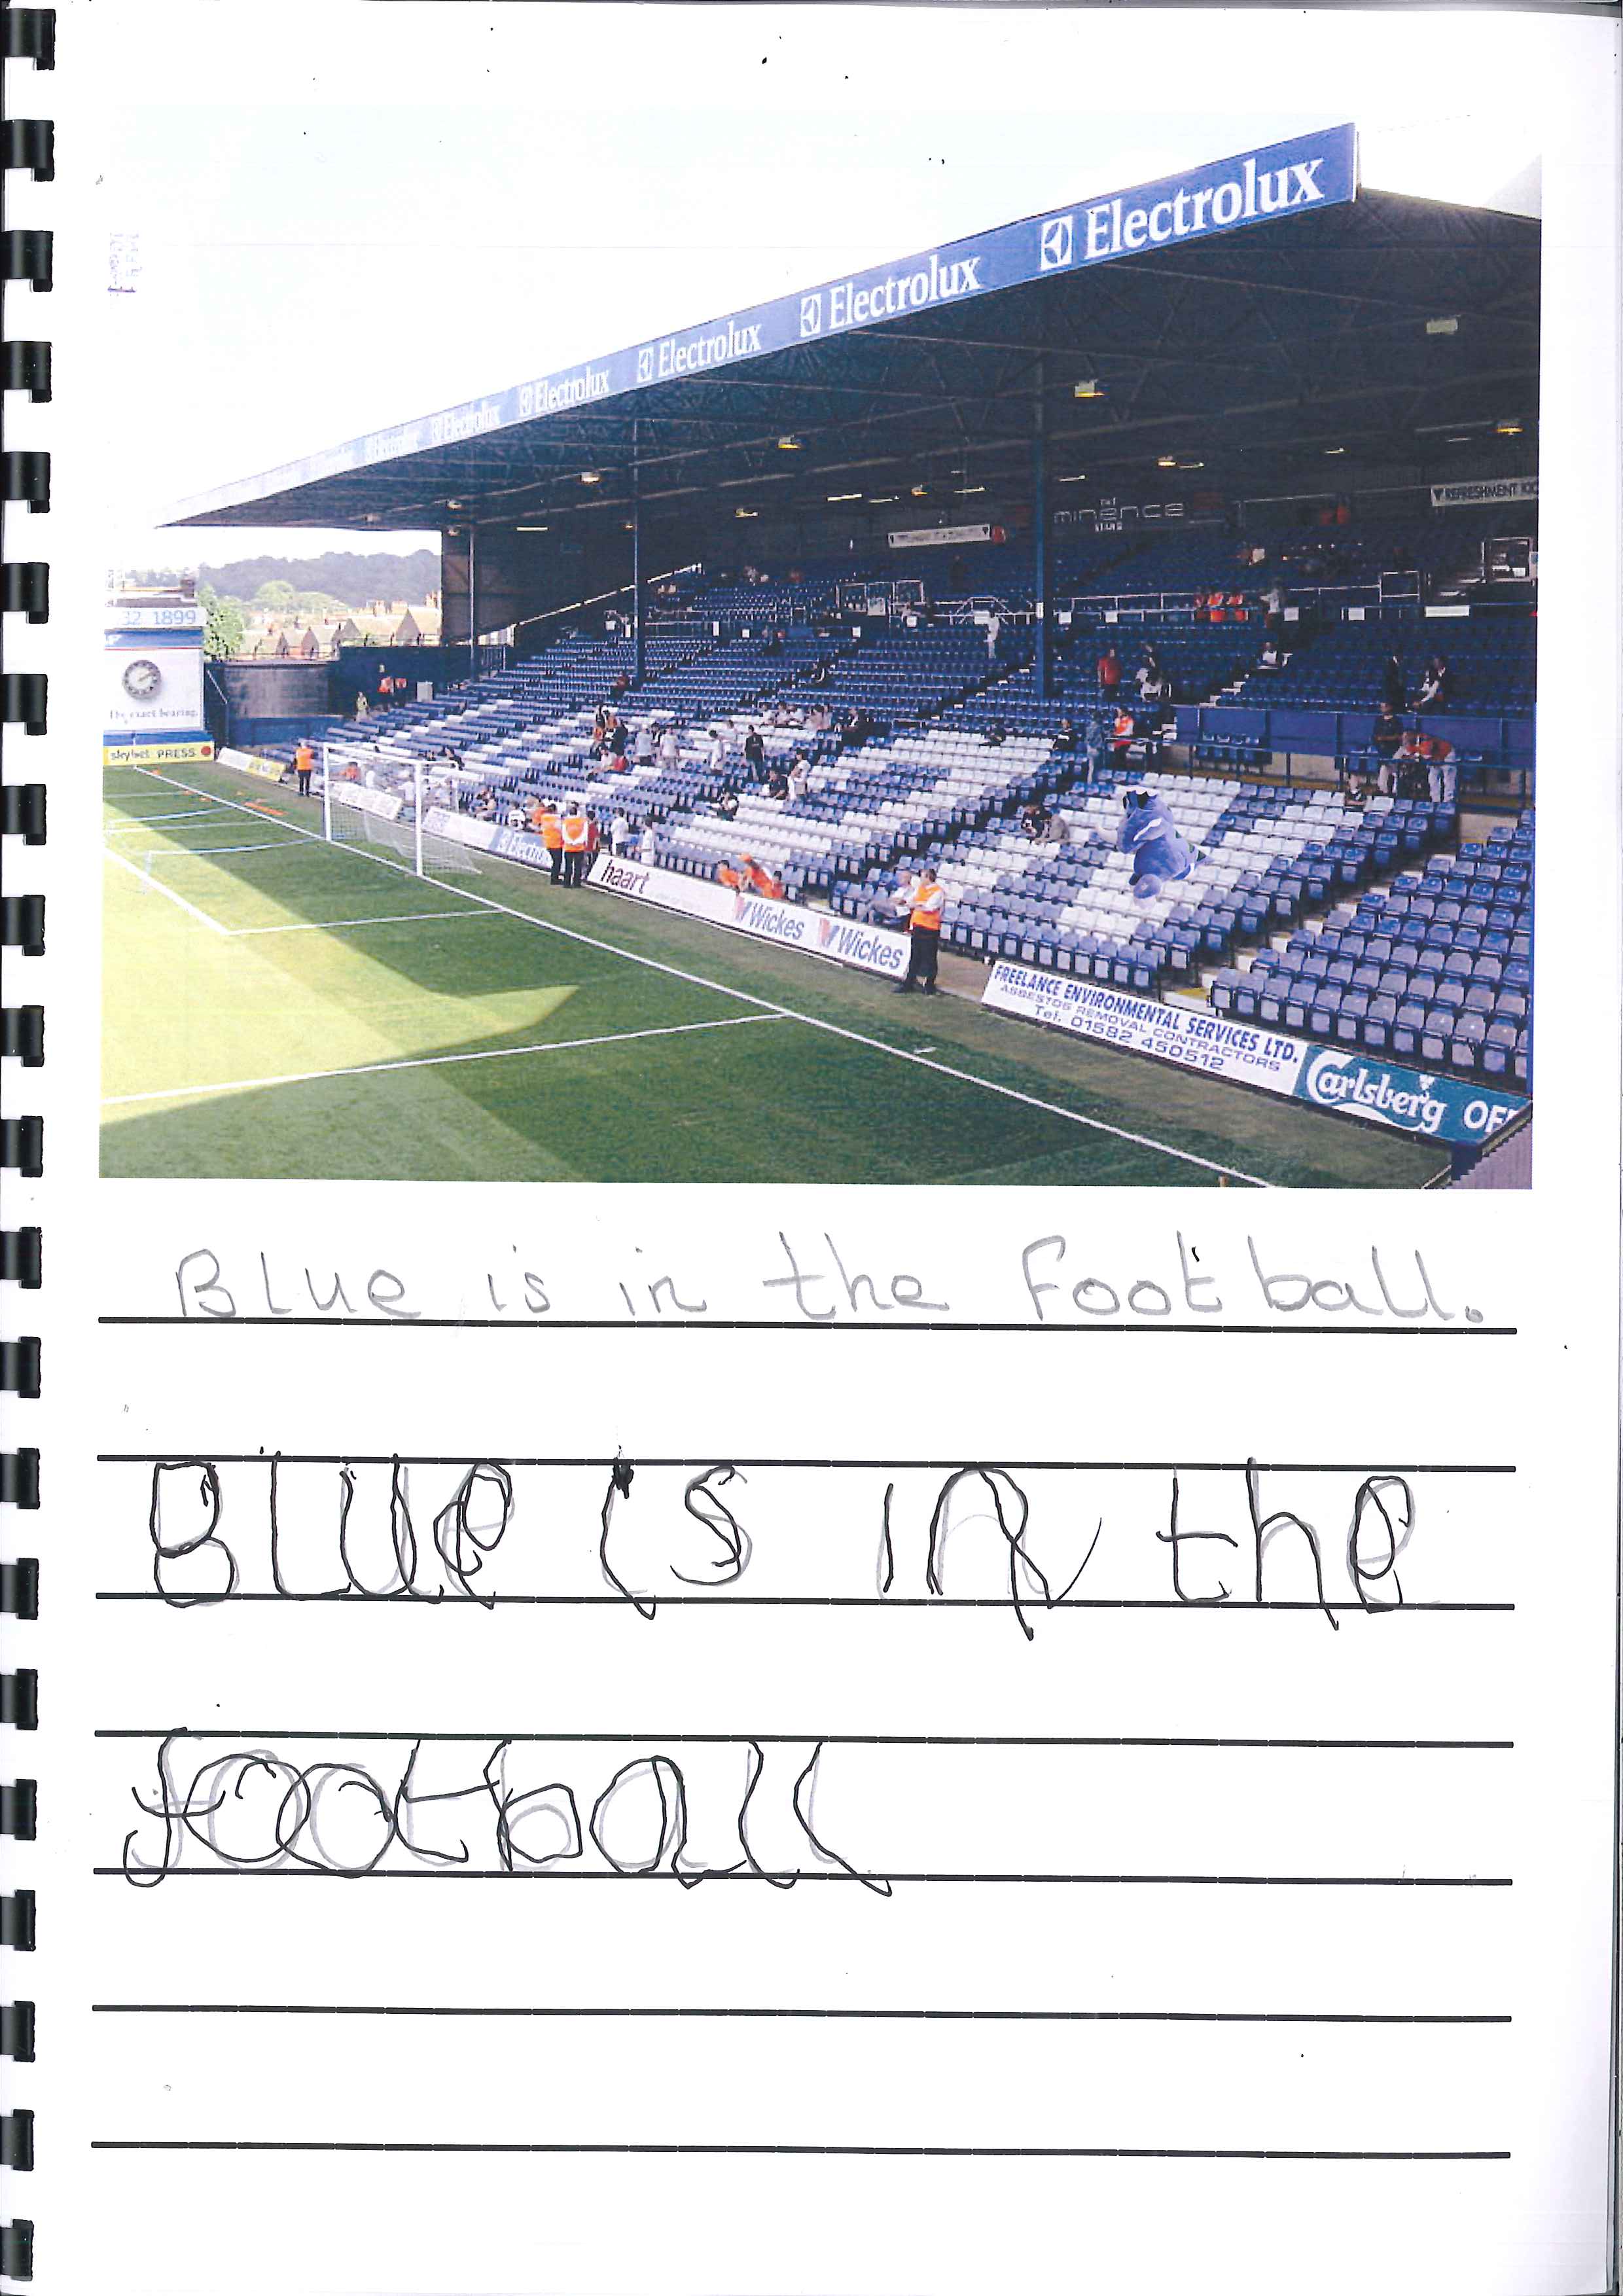 Electrolux
Electrolux
Electrolux
Electrolux
Electrolux
REFRESHMENT
32 1899
skybet PRESS
Electrolux
haart
Wickes Wickes
FREELANCE ENVIRONMENTAL SERVICES LTD.
ASBESTOS REMOVAL CONTRACTORS
Tel. 01582 450512
Carlsberg OF
Blue is in the football.
Blue is in the
football